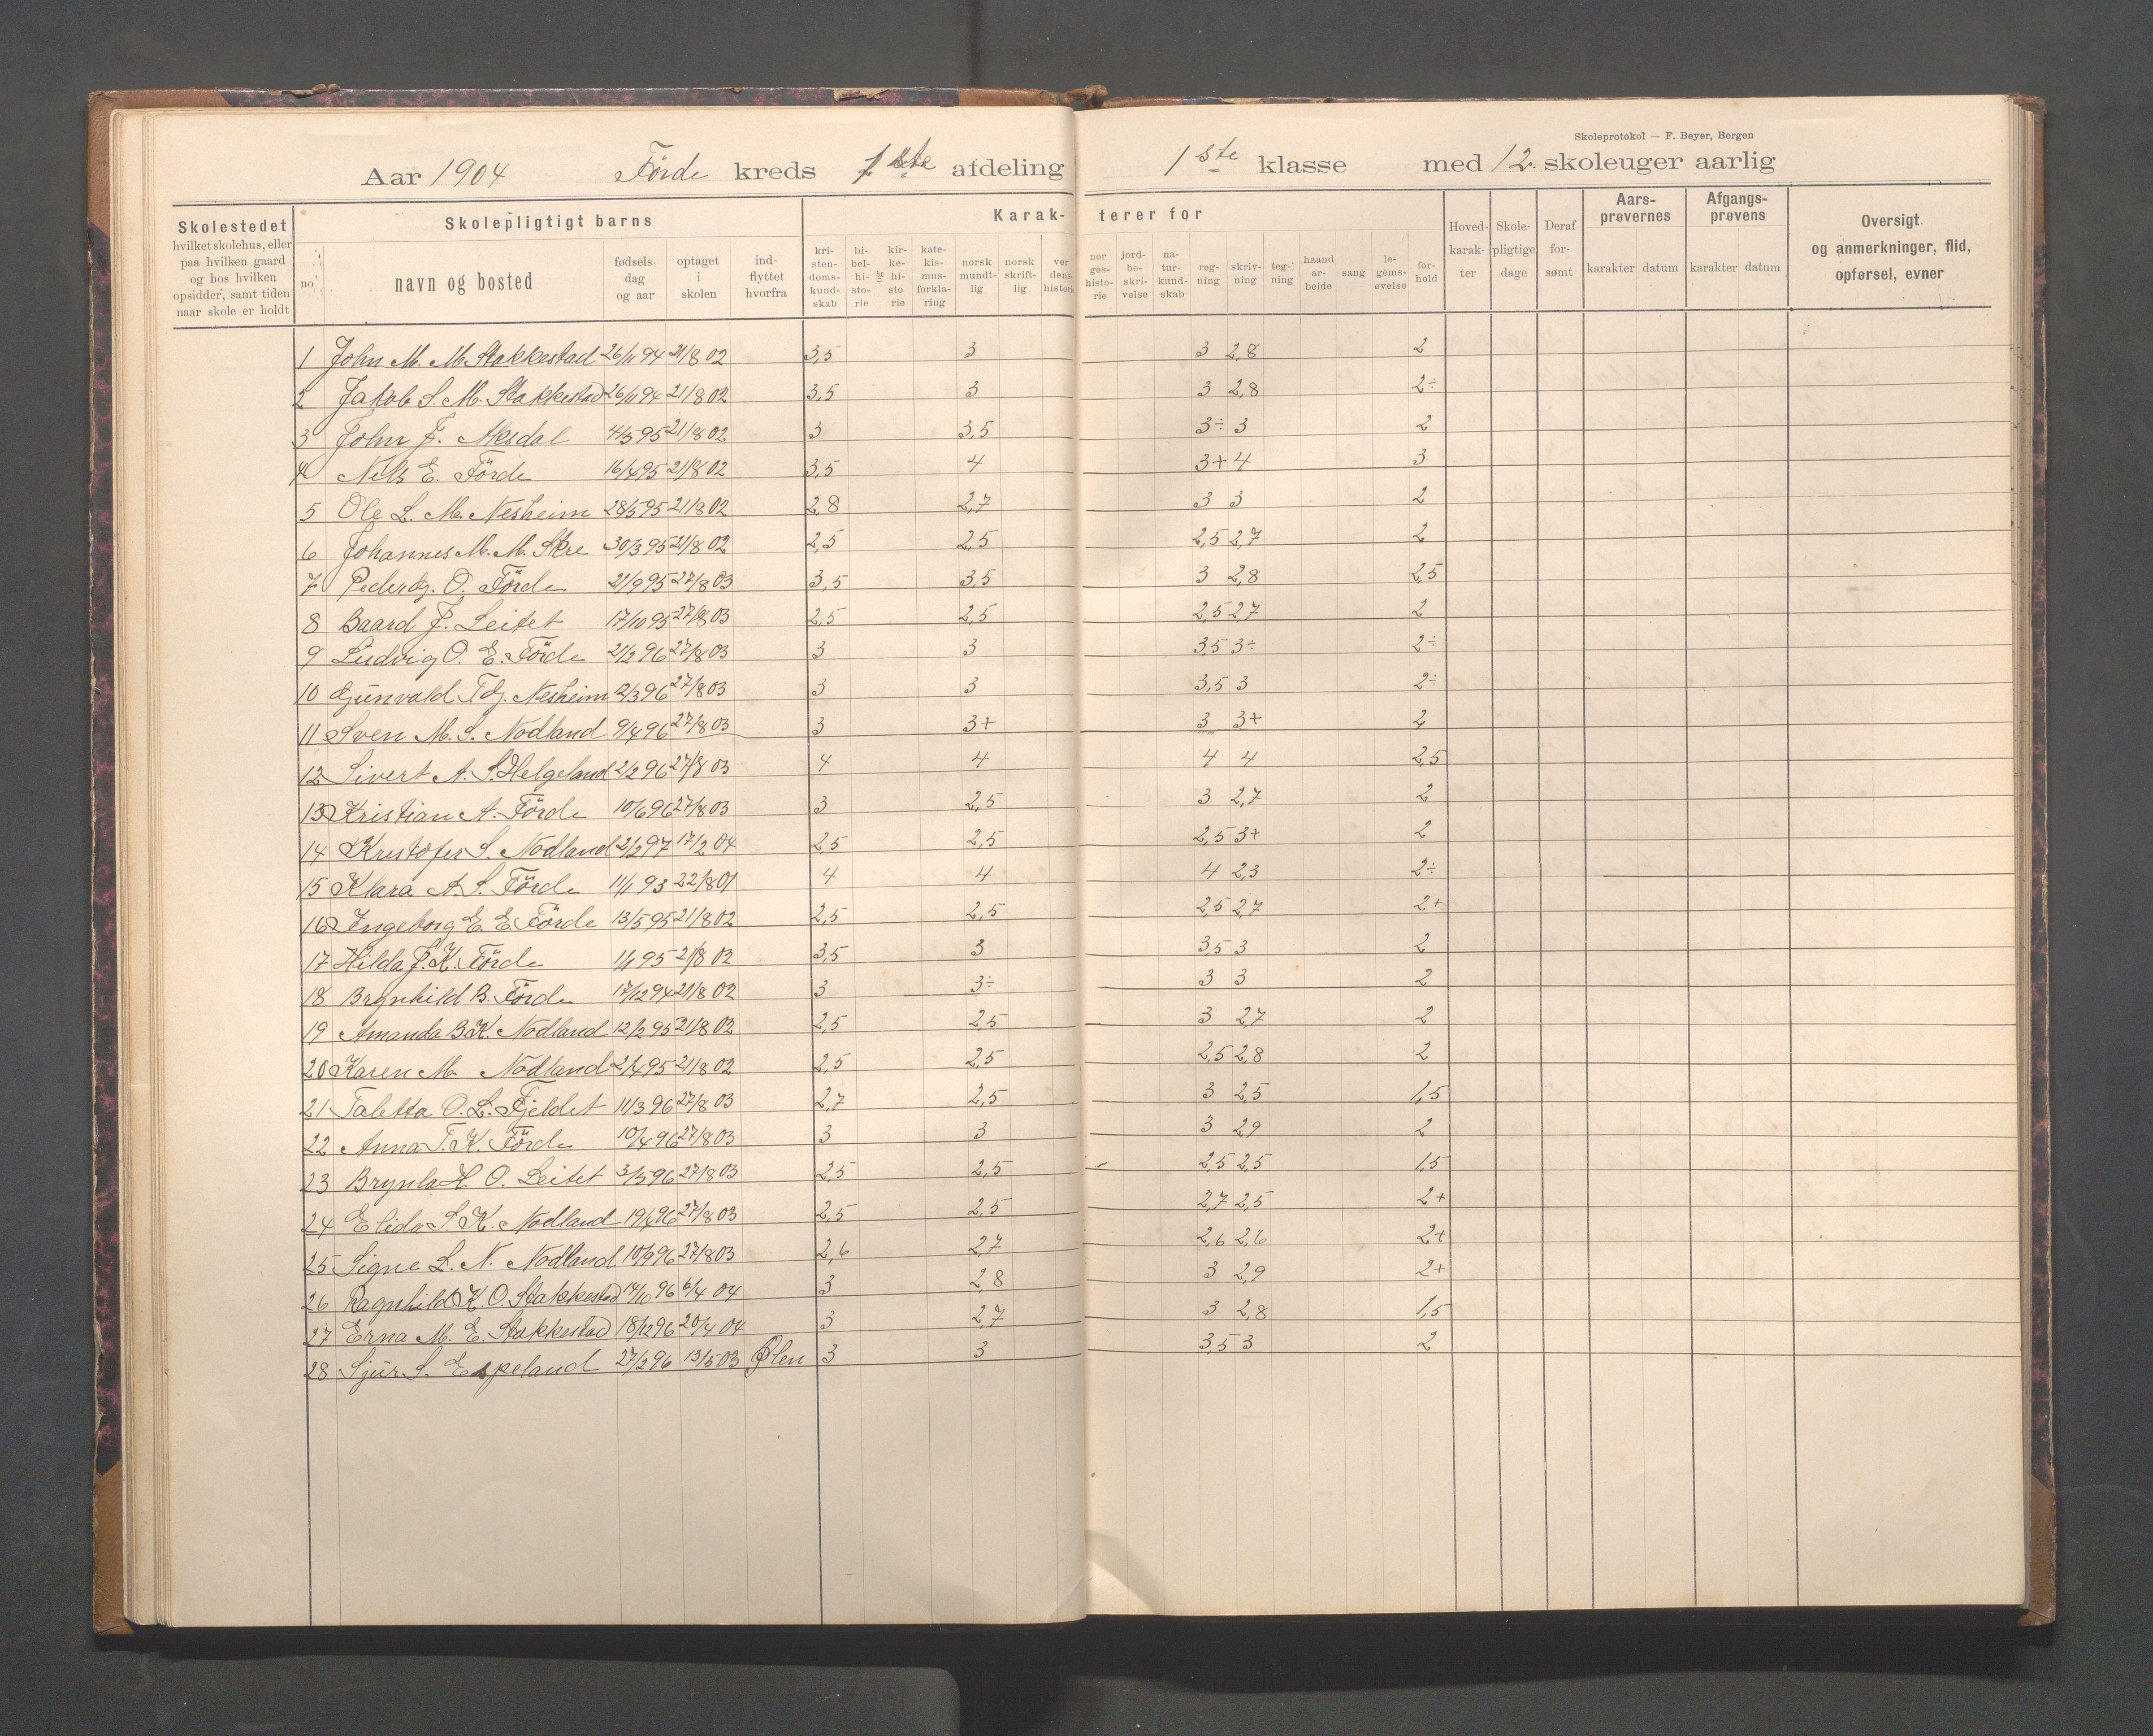 Skoleprotokol — F. Beyer, Bergen
Aar 1904 Förde kreds 1ste afdeling 1ste klasse med 12 skoleuger aarlig
Skolestedet hvilket skolehus, eller paa hvilken gaard og hos hvilken opsidder, samt tiden naar skole er holdt
Skolepligtigt barns
no navn og bosted fødselsdag og aar optaget i skolen indflyttet hvorfra
Karakterer for
kristendomskundskab bibelhistorie og kirkehistorie katekismusforklaring norsk mundtlig norsk skriftlig verdenshistorie norgeshistorie jordbeskrivelse naturkundskab regning skrivning tegning haandarbeide sang legemsøvelse forhold
Hovedkarakter Skolepligtige dage Deraf forsømt
Aarsprøvernes karakter datum
Afgangsprøvens karakter datum
Oversigt og anmerkninger, flid, opførsel, evner
1 John M. M. Stakkestad 26/11 94 21/8 02 3,5 3 3 2,8 2
2 Jakob S. M. Stakkestad 26/11 94 21/8 02 3,5 3 3 2,8 2÷
3 John J. Aksdal 4/3 95 21/8 02 3 3,5 3÷ 3 2
4 Nels E. Förde 16/4 95 21/8 02 3,5 4 3+ 4 3
5 Ole L. M. Nesheim 28/5 95 21/8 02 2,8 2,7 3 3 2
6 Johannes M. M. Skre 30/3 95 21/8 02 2,5 2,5 2,5 2,7 2
7 Peder G. O. Förde 21/9 95 27/8 03 3,5 3,5 3 2,8 2,5
8 Baard J. Leitet 17/10 95 27/8 03 2,5 2,5 2,5 2,7 2
9 Ludvig O. E. Förde 21/2 96 27/8 03 3 3 3,5 3÷ 2÷
10 Gunvald T. G. Nesheim 12/3 96 27/8 03 3 3 3,5 3 2÷
11 Sven M. S. Nodland 9/4 96 27/8 03 3 3+ 3 3+ 2
12 Sivert A. S. Helgeland 2/2 96 27/8 03 4 4 4 4 2,5
13 Kristian A. Förde 10/6 96 27/8 03 3 2,5 3 2,7 2
14 Kristofer S. Nodland 2/2 97 17/2 04 2,5 2,5 2,5 3+ 2
15 Klara A. S. Förde 11/1 93 22/8 01 4 4 4 2,3 2÷
16 Ingeborg E. E. Förde 13/5 95 21/8 02 2,5 2,5 2,5 2,7 2+
17 Hilda J. K. Förde 1/1 95 21/8 02 3,5 3 3,5 3 2
18 Brynhild B. Förde 17/12 94 21/8 02 3 3÷ 3 3 2
19 Amanda B. K. Nodland 12/2 95 21/8 02 2,5 2,5 3 2,7 2
20 Karen M. Nodland 2/4 95 21/8 02 2,5 2,5 2,5 2,8 2
21 Taletta O. L. Fjeldet 11/3 96 27/8 03 2,7 2,5 3 2,5 1,5
22 Anna T. K. Förde 10/4 96 27/8 03 3 3 3 2,9 2
23 Brynla H. O. Leitet 3/5 96 27/8 03 2,5 2,5 2,5 2,5 1,5
24 Elida S. K. Nodland 19/4 96 27/8 03 2,5 2,5 2,7 2,5 2+
25 Signe L. N. Nodland 10/9 96 27/8 03 2,6 2,7 2,6 2,6 2+
26 Ragnhild K. O. Stakkestad 14/10 96 6/4 04 3 2,8 3 2,9 2+
27 Erna M. E. Stakkestad 18/12 96 20/4 04 3 2,7 3 2,8 1,5
28 Sjur S. Espeland 27/2 96 13/5 03 Ølen 3 3 3,5 3 2